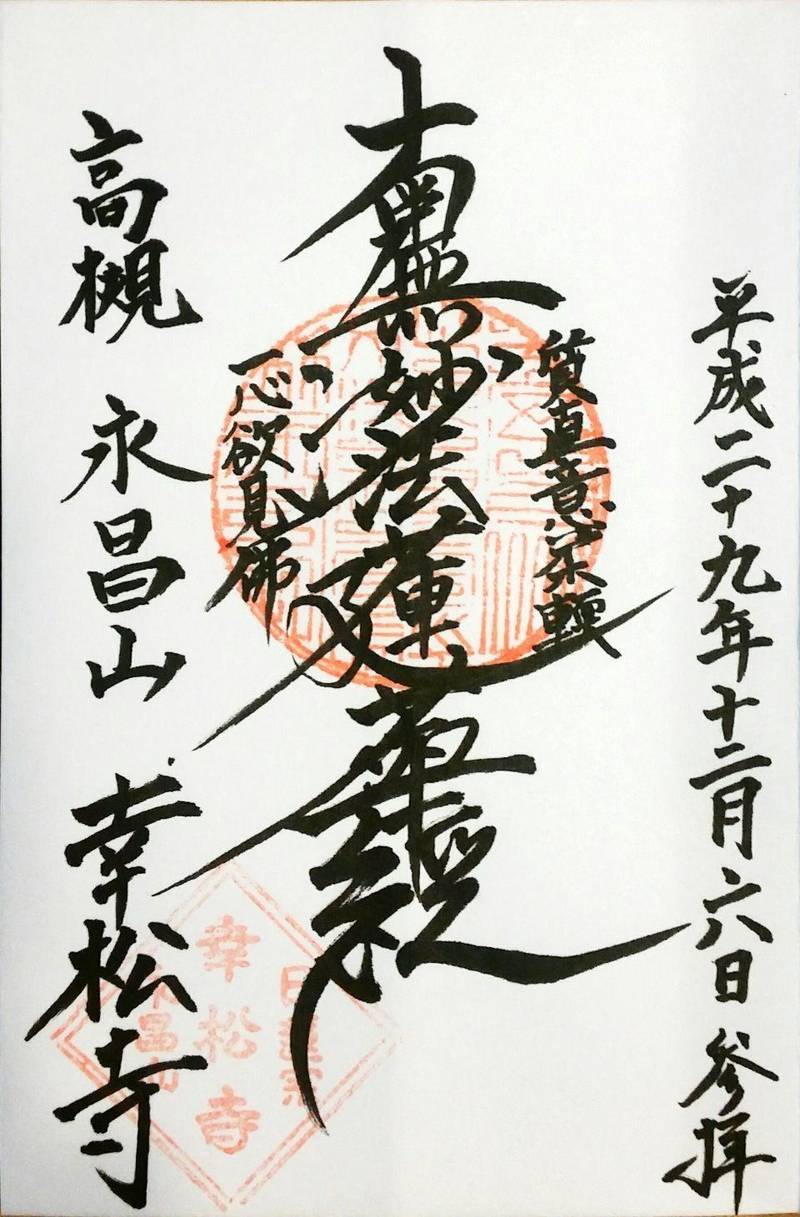 平成二十九年十二月六日 参拝
質直意柔軟
南無妙法蓮華經
一心欲見佛
高槻 永昌山 幸松寺
日蓮宗
幸松寺
永昌山